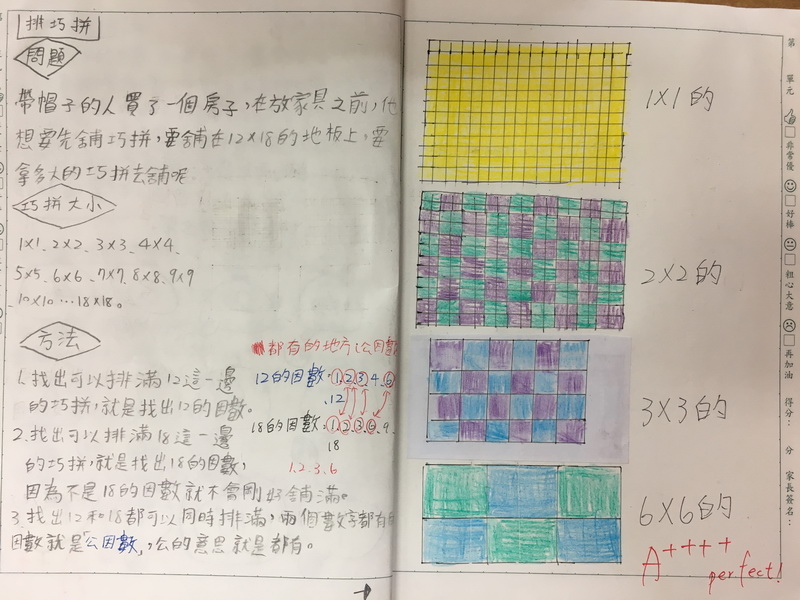 排巧拼
問題
帶帽子的人買了一個房子,在放家具之前,他
想要先舖巧拼,要舖在12×18的地板上,要
拿多大的巧拼去舖呢
巧拼大小
1×1、2×2、3×3、4×4、
5×5、6×6、7×7、8×8、9×9
10×10…18×18。
方法
都有的地方(公因數
1.找出可以排滿12這一邊
的巧拼,就是找出12的因數。
12的因數:1,2,3,4,6
,12
2.找出可以排滿18這一邊
的巧拼,就是找出18的因數,
因為不是18的因數就不會剛好舖滿。
18的因數:1,2,3,6,9,
18
1,2,3,6
3.找出12和18都可以同時排滿,兩個數字都有的
因數就是“公因數”,公的意思就是都有。
1×1的
2×2的
3×3的
6×6的
A++++
perfect!
第
單元
非常優
好棒
粗心大意
再加油
得分:
分
家長簽名: